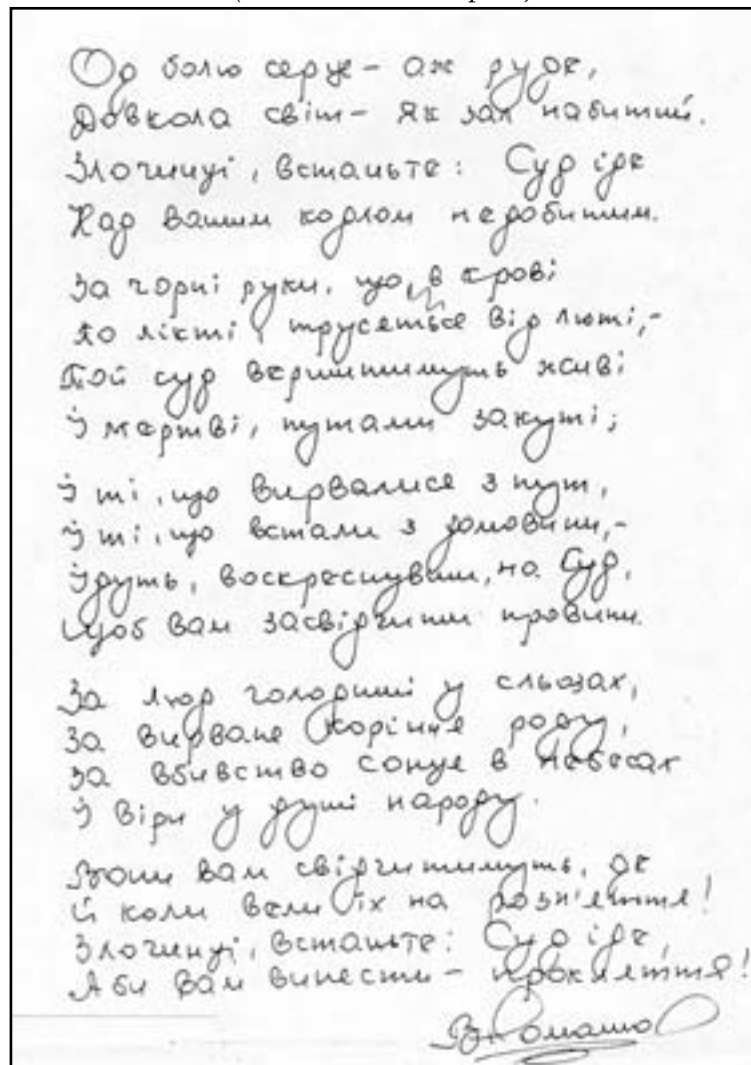 Од болю серце – аж руде,
Довкола світ – як зал набитий.
Злочинці, встаньте: Суд іде
Над вашим кодлом недобитим.
За чорні руки, що в крові
По лікті, трусяться від люті,–
Той суд вершитимуть живі
Й мертві, путами закуті;
Й ті, що вирвалися з пут,
Й ті, що встали з домовини,–
Йдуть, воскреснувши, на Суд,
Щоб вам засвідчити провини.
За люд голодний у сльозах,
За вирване коріння роду,
За вбивство сонця в небесах
Й віри у душі народу.
Вони вам свідчитимуть, де
й коли вели їх на розп'яття!
Злочинці, встаньте: Суд іде,
Аби вам винести – прокляття!